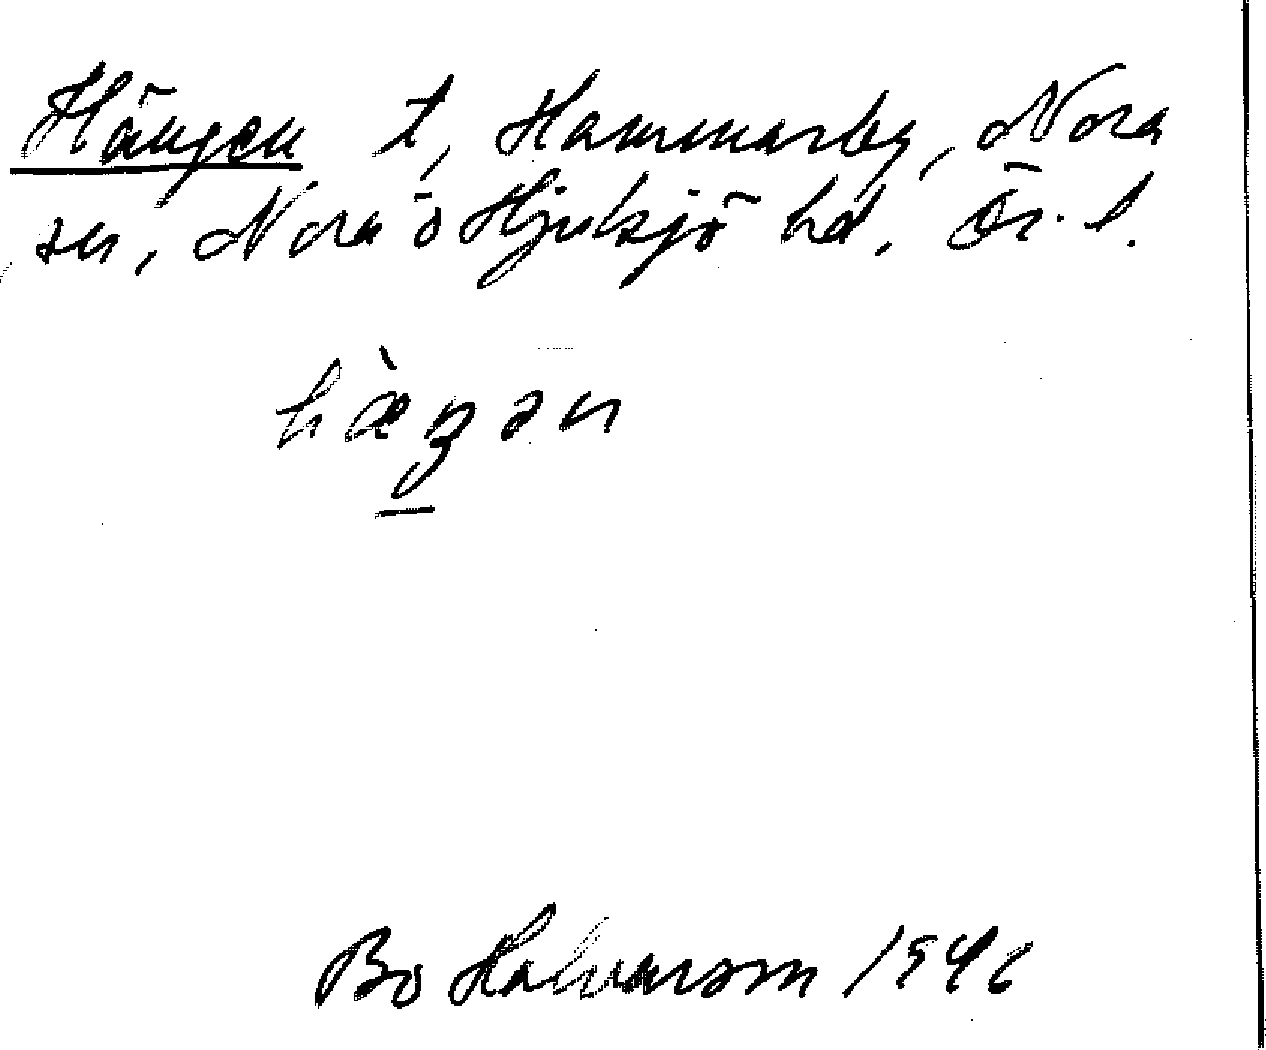 Hängen t, Hammarby, Nora
sn, Nora o Hjulsjö hd, Ör. l.
hæ̀ŋən
Bo Halvarson 1946